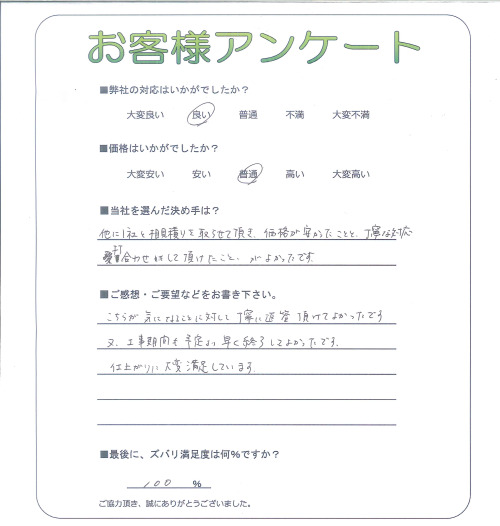 お客様アンケート
■弊社の対応はいかがでしたか？
大変良い 良い 普通 不満 大変不満
■価格はいかがでしたか？
大変安い 安い 普通 高い 大変高い
■当社を選んだ決め手は？
他に1社と相見積りを取らせて頂き、価格が安かったことと、丁寧な対応
打合わせをして頂けたこと、がよかったです。
■ご感想・ご要望などをお書き下さい。
こちらが気になることに対して丁寧に返答頂けてよかったです
又、工事期間も予定より早く終了してよかったです。
仕上がりに大変満足しています。
■最後に、ズバリ満足度は何%ですか？
100 %
ご協力頂き、誠にありがとうございました。